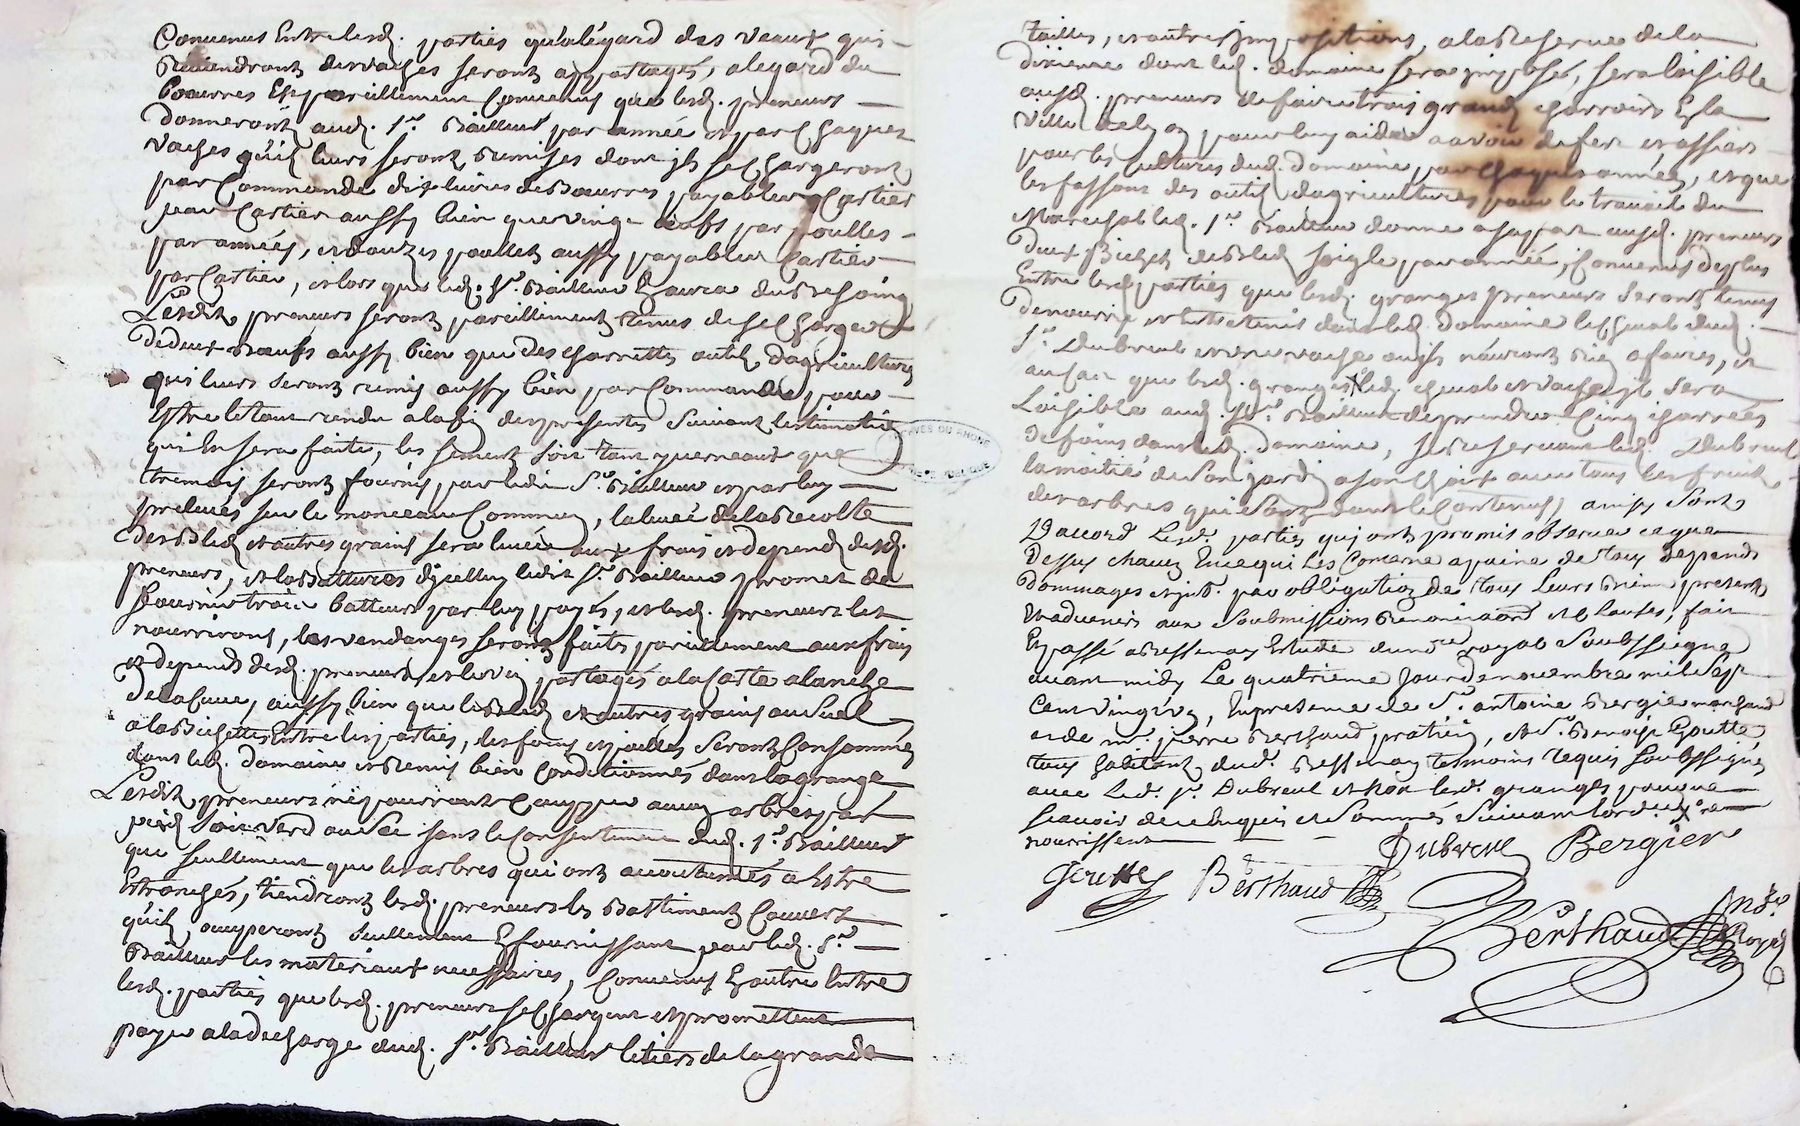 Convenus Entre lesd. parties qu'alégard des veaux qui
proviendront desvaches seront appartagés, alegard du
beurres Est pareillement Convenus que lesd. preneurs
donneront aud. Sr. Bailleur par année et par Chaques
vaches qu'il leurs seront remises dont ils se Chargeront
par Commande dix livres de Beurres payables Cartier
pear Cartier aussy bien que vingt oeufs par poulles
par années, et douzes poullets aussy payables Cartier
par Cartier, et lors que led. Sr. Bailleur En aura du Besoing
Lesdits preneurs seront pareillement tenus de se Charger
De deux Boeufs aussy bien que des charrettes outils d'agricultures
qui leurs seront remis aussy bien par Commande, pour
Estre le tout rendu a la fin des presentes suivant lestimation
qui En sera faite, les semens soit tant yverneaux que
tremois seront fournis par ledit Sr. Bailleur et par luy
prelevés sur le monceau Commun, la levée de la Recolte
des Bled et autres grains sera levée aux frais et depend desd.
preneurs, et la Battures dycelluy ledit Sr. Bailleur promet de
fournir trois batteurs par luy payés, et lesd. preneurs les
nourriront, les vendanges seront faites pareillement aux frais
et depends desd. preneurs et le vin partagés a la Caste a lanche
de la Cuve, aussy bien que les Bled et autres grains au sueil
a la Bichettes Entre les parties, les foins et pailles seront Consommés
dans led. domaine et Remis bien Conditionnés dans la grange
Lesdits preneurs ne pourront Coupper aucun arbres par
pied soit verd ou sec sans le Consentement dud. Sr. Bailleur
que seullement que les arbres qui ont accoutumés a Estre
Etranchés, tiendront lesd. preneurs les Battiments Couvert
qu'ils occuperont seullement En fournissant pear led. Sr.
Bailleur les materiaux necessaires, Convenus En outre Entre
lesd. parties que lesd. preneurs se Chargent et promettent
payer a la decharge dud. Sr. Bailleur le tiers de la grande
tailles, et autres impositions, a la Reserve de la
dixieme dont led. domaine sera imposé, sera loisible
ausd. preneurs de faire trois grands charrois En la
ville de Lyon pour luy aider a avoir du fer et assiers
pour les cultures dud. domaine par Chaques années, et que
les fassons des outils d'agricultures pour le travail du
Marechal led. Sr. Bailleur donne a sa part ausd. preneurs
deux Bichets de Bled soigle par année, Convenus de plus
Entre lesd. parties que lesd. granger preneurs seront tenus
de nourrir et Entretenir dans led. domaine le cheval dud.
Sr. Dubreul et une vache ou ils n'auront rien a faire, et
au cas que lesd. granger led. cheval et vache il sera
Loisible aud. Sr. Bailleur de prendre Cinq charrées
de foins dans led. domaine, se Reservant led. Dubreul
la moitié de son jardin a son Choix avec tous les fruits
des arbres qui sont dans le Contenus, ainsy sont
D'accord Lesd. parties qui ont promis observer ce que
Dessus chacun En ce qui Les Concerne a paine de tous depends
Dommages et int. par obligation de tous Leurs Biens presents
et advenirs aux soubmissions Renonciaons et Clauses, fait
Et passé a Bessenay Estude du nre. royal soubssigné
avant midy Le quatrieme jour de novembre mil sept
Cent vingt, En presence de Sr. antoine Bergier marchand
et de me. pierre Berthaud praticien, et Sr. Benoist Goutte
tous habitants dud. Bessenay temoins requis soubssignés
avec Led. Sr. Dubreul et non lesd. granger pour ne
scavoir de ce Enquis et sommés suivant lord.ce X ne
nourrissent
Dubreul Bergier
Goutte Berthaud
Berthaud Nre. Royal
ARCHIVES DU RHONE